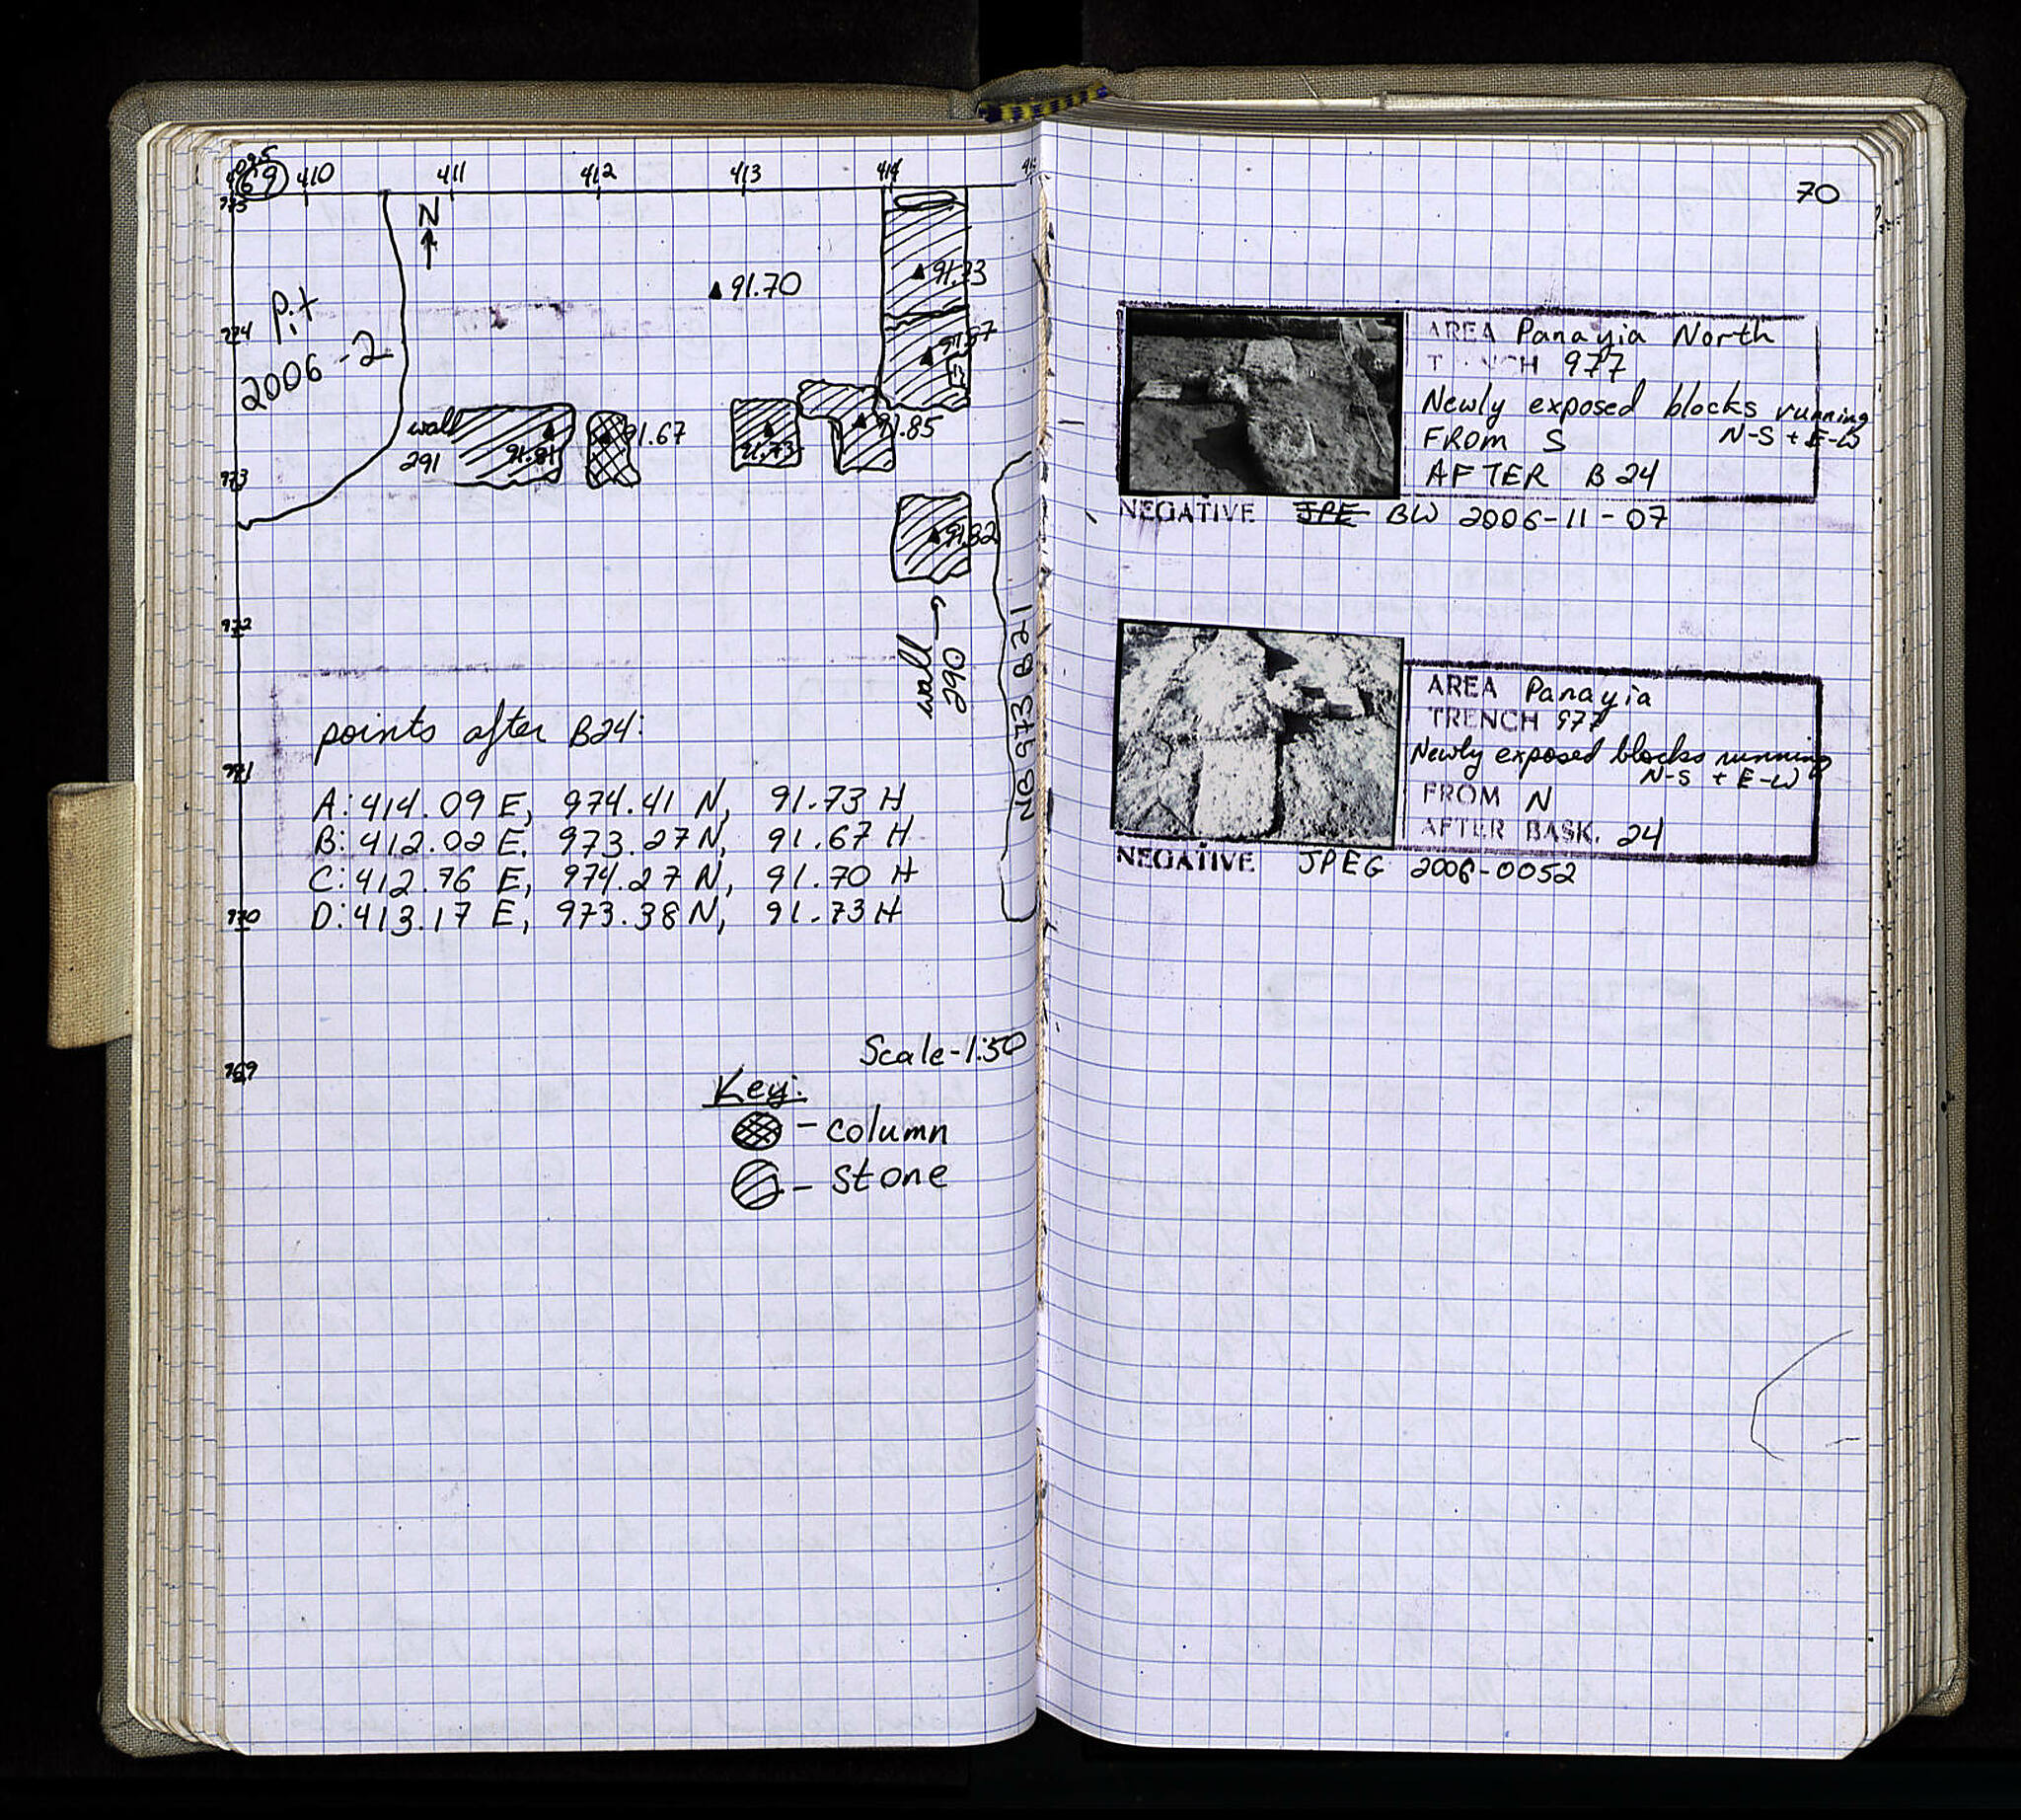 69 410 411 412 413 414
N
91.70
974
Pit
2006-2
91.57
wall
291
91.67
91.73
91.85
973
91.82
972
wall
290
NB 873 B21
points after B24:
971
A: 414.09 E, 974.41 N, 91.73 H
B: 412.02 E, 973.27 N, 91.67 H
C: 412.76 E, 974.27 N, 91.70 H
970
D: 413.17 E, 973.38 N, 91.73 H
Scale-1:50
969
Key:
- column
- stone
70
AREA Panayia North
TRENCH 977
Newly exposed blocks running
FROM S N-S + E-W
AFTER B24
NEGATIVE JPE BW 2006-11-07
AREA Panayia
TRENCH 977
Newly exposed blocks running
N-S + E-W
FROM N
AFTER BASK. 24
NEGATIVE JPEG 2006-0052